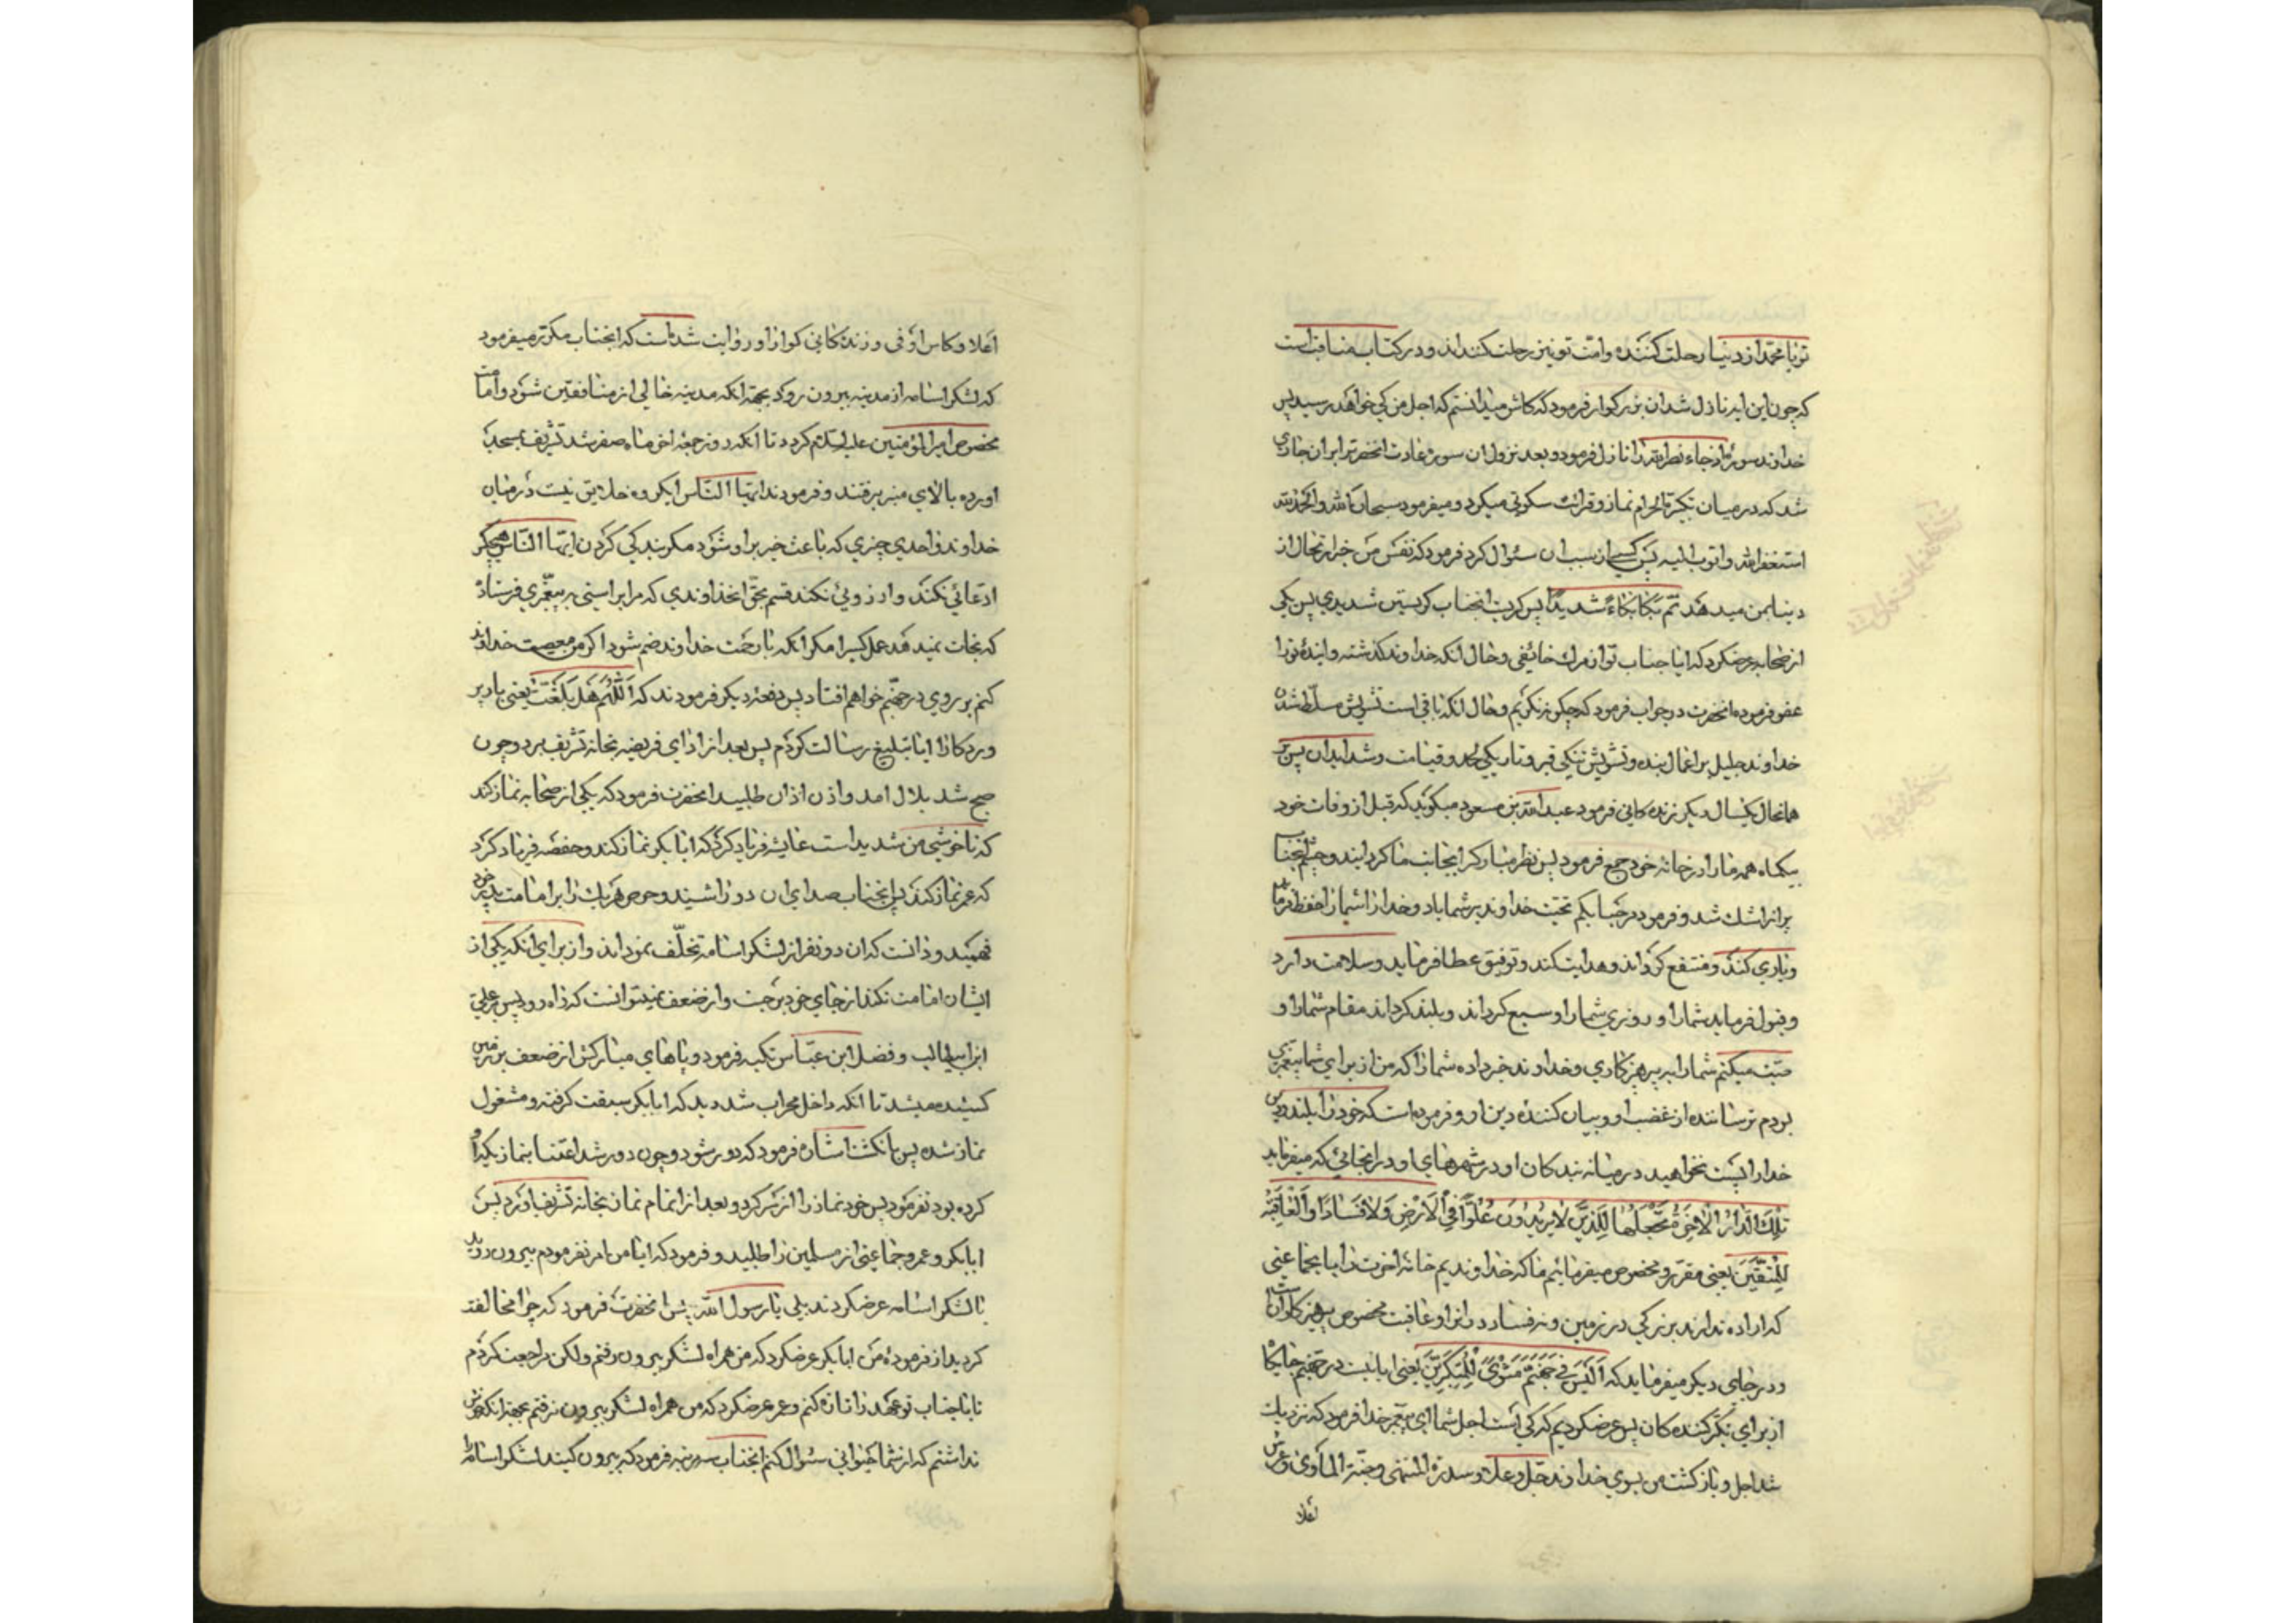 تو یا محمد از دنیا رحلت کننده و امت تو نیز رحلت کننده‌اند و در کتاب مناقب است
که چون این ایه نازل شد ان بزرکوار فرمود که کاش میدانستم که اجل من کی خواهد رسید پس
خداوند سوره اذا جاء نصر الله را نازل فرمود و بعد نزول ان سوره عادت انحضرت بر این جاری
شد که در میان تکبیرة الاحرام نماز و قرائت سکوتی میکرد و میفرمود سبحان الله و الحمد لله
استغفر الله و اتوب الیه پس کسی از سبب ان سئوال کرد فرمود که نفس من خبر ارتحال از
دنیا بمن میدهد ثم بکا بکاءً شدیداً پس کریست انجناب کریستن شدیدی پس یکی
از صحابه عرضکرد که ایا جناب تو از مرک خائفی و حال انکه خداوند کذشته و ایندهٔ تو را
عفو فرموده انحضرت در جواب فرمود که چکونه نکریم و حال انکه باقی است تشویش مسلط شدن
خداوند جلیل بر اعمال بنده و تشویش تنکی قبر و تاریکی لحد و قیامت و شداید ان پس بر
همانحال یکسال دیکر زندکانی فرمود عبدالله بن مسعود میکوید که قبل از وفات خود
بیکماه همه ما را در خانه خود جمع فرمود پس نظر مبارک را بجانب ما کردانید و چشم انجناب
پر از اشک شد و فرمود مرحبا بکم تحیت خداوند بر شما باد و خدا شما را حفظ فرماید
و یاری کند و منتفع کرداند و هدایت کند و توفیق عطا فرماید و سلامت دارد
و قبول فرماید شما را و روزی شما را وسیع کرداند و بلند کرداند مقام شما را و
وصیت میکنم شما را به پرهیزکاری و خداوند خبر داده شما را که من از برای شما پیغمبری
بودم ترساننده از غضب او و بیان کننده دین او و فرموده است که خود را بلند و دین
خدا را پست نخواهید در میانه بندکان او در شهرهای او در انجائی که میفرماید
تِلْکَ الدّارُ الْاخِرَةُ نَجْعَلُها لِلَّذینَ لایُریدُونَ عُلُوّاً فِی الْاَرْضِ وَلافَساداً وَالْعاقِبَةُ
لِلْمُتَّقینَ یعنی مقرر و مخصوص میفرمائیم ما که خداوندیم خانه اخرت را بجماعتی
که اراده ندارند بزرکی در زمین و نه فساد در انرا و عاقبت مخصوص پرهیزکاران است
و در جای دیکر میفرماید که اَلَیْسَ فی جَهَنَّمَ مَثْویً لِلْمُتَکَبِّرینَ یعنی ایا نیست در جهنم جایکاه
از برای تکبر کننده کان پس عرضکردیم که کی است اجل شما ای پیغمبر خدا فرمود که نزدیک
شد اجل و بازکشت من بسوی خداوند جل و علا و سدرة المنتهی و جنة الماوی و عرش
اعلا
اعلا و کاس اوفی و زندکانی کوارا و روایت شده است که انجناب مکرر میفرمود
که لشکر اسامه از مدینه بیرون رود بجهة انکه مدینه خالی از منافقین شود و امامت
مخصوص امیرالمؤمنین علیه السلام کردد تا انکه روز جمعه اخر ماه صفر شد تشریف بمسجد
اورده بالای منبر رفتند و فرمودند ایها الناس ای کروه خلایق نیست در میان
خداوند و احدی چیزی که باعث خیر بر او شود مکر بندکی کردن ایها الناس هیچکس
ادعائی نکند و ارزوئی نکند قسم بحق انخداوندی که مرا براستی به پیغمبری فرستاد
که نجات نمیدهد عمل کسی را مکر انکه با رحمت خداوند ضم شود اکر من معصیت خداوند
کنم بر روی در جهنم خواهم افتاد پس دفعه دیکر فرمودند که اَللّٰهُمَّ هَلْ بَلَّغْتُ یعنی بار پر
وردکارا ایا تبلیغ رسالت کردم پس بعد از ادای فریضه بخانه تشریف برد و چون
صبح شد بلال امد و اذن اذان طلبید انحضرت فرمود که یکی از صحابه نماز کند
که ناخوشی من شدید است عایشه فریاد کرد که ابابکر نماز کند و حفصه فریاد کرد
که عمر نماز کند پس انجناب صدای ان دو را شنید و حرص هر یک را بر امامت پدر خود
فهمید و دانست که ان دو نفر از لشکر اسامه تخلف نموده‌اند و از برای انکه یکی از
ایشان امامت نکند از جای خود برجست و از ضعف نمیتوانست که راه رود پس بر علی
ابن ابیطالب و فضل ابن عباس تکیه فرمود و پاهای مبارکش از ضعف بر زمین
کشیده میشد تا انکه داخل محراب شد دید که ابابکر سبقت کرفته و مشغول
نماز شده پس بانکشت اشاره فرمود که دور شود و چون دور شد اعتنا بنماز یکه او
کرده بود نفرمود پس خود نماز را از سر کرد و بعد از اتمام نماز بخانه تشریف اورد پس
ابابکر و عمر و جماعتی از مسلمین را طلبید و فرمود که ایا من امر نفرمودم بیرون روید
با لشکر اسامه عرضکردند بلی یا رسول الله پس انحضرت فرمود که چرا مخالفت
کردید از فرمودهٔ من ابابکر عرضکرد که من همراه لشکر بیرون رفتم ولکن مراجعت کردم
تا با جناب تو عهد را تازه کنم و عمر عرضکرد که من همراه لشکر بیرون نرفتم بجهة انکه خوش
نداشتم که از شما خبر سئوال کنم انجناب سه مرتبه فرمود که بیرون کنید لشکر اسامه را